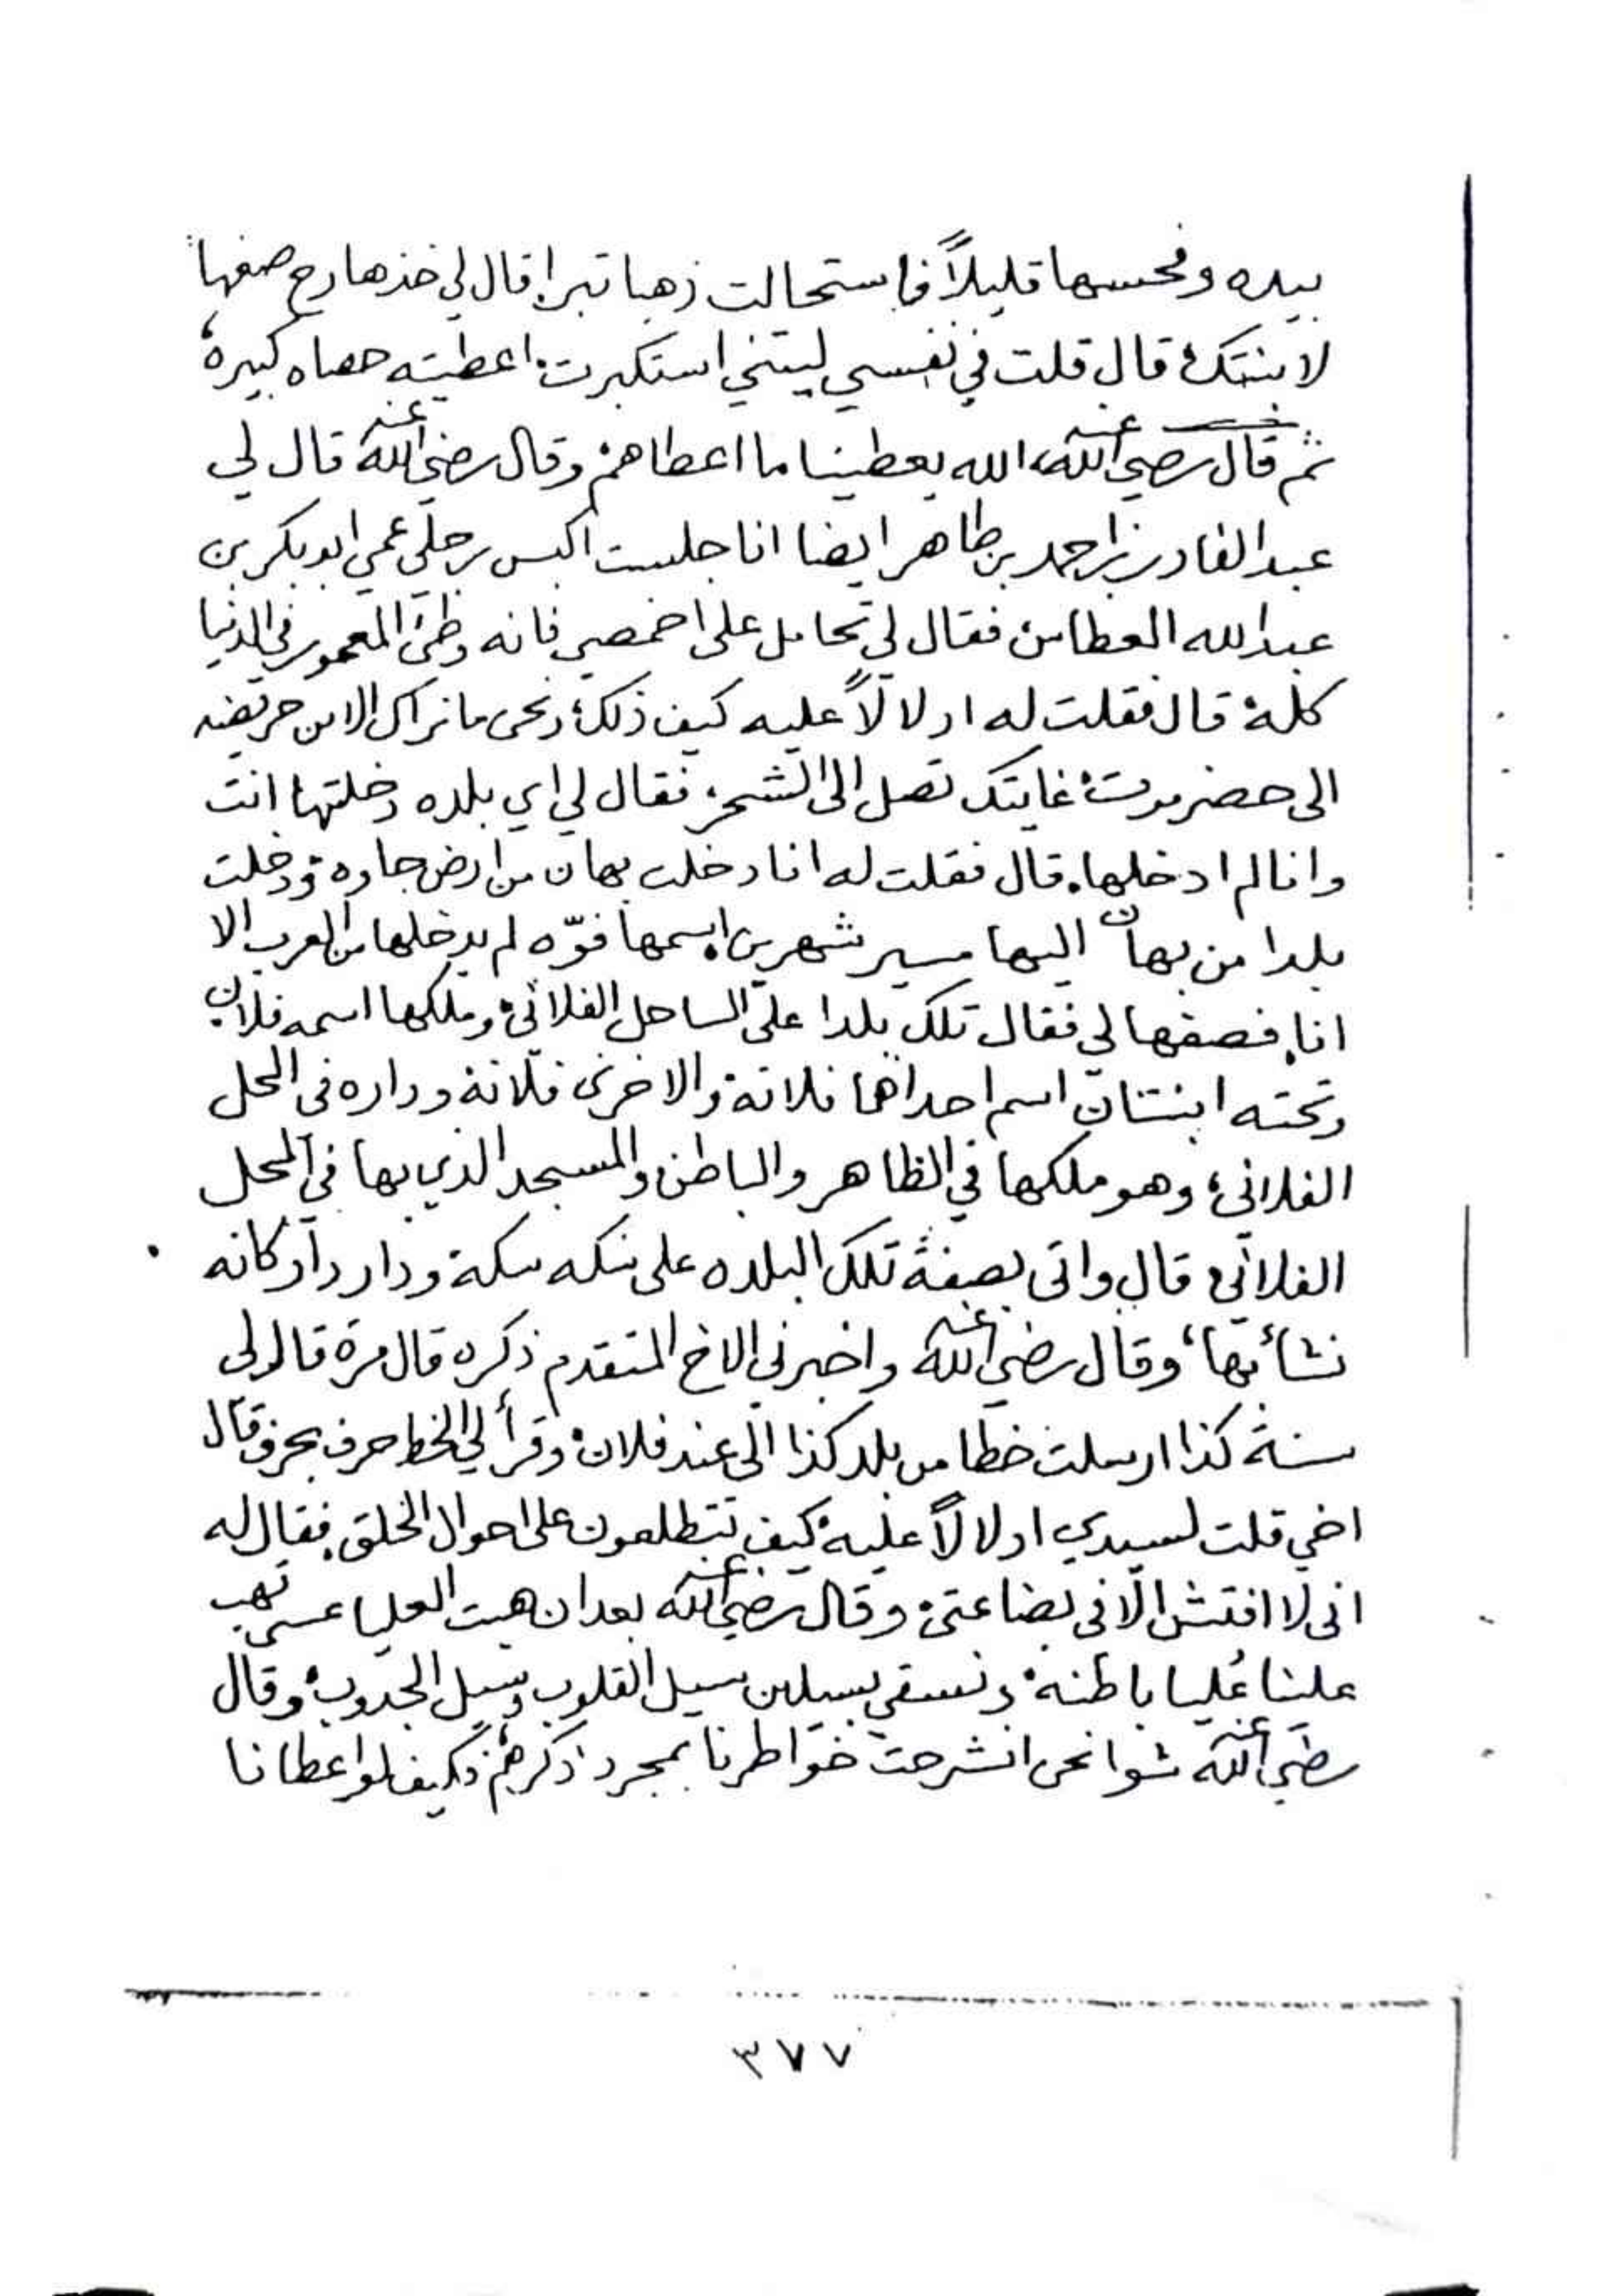 بيده وفحسها قليلاً فاستحالت ذهبا تبرا قال لي خذها رح صغها
لابنتك قال قلت في نفسي ليتني استكبرت اعطيته حصاه كبيرة
ثم قال رضي الله عنه الله يعطينا ما اعطاهم وقال رضي الله عنه قال لي
عبد القادر بن احمد بن طاهر ايضا انا جلست اكبس رجلي عمي ابوبكر بن
عبد الله العطاس فقال لي تحامل على اخمصي فانه وطئ المعمور في الدنيا
كله قال فقلت له ادلالاً عليه كيف ذلك ونحن ما نراك الا من حريضه
الى حضرموت غايتك تصل الى الشحر فقال لي اي بلده دخلتها انت
وانا لم ادخلها قال فقلت له انا دخلت بهان من ارض جاوه ودخلت
بلدا من بهان اليها مسير شهرين اسمها فوّه لم يدخلها من العرب الا
انا فصفها لي فقال تلك بلدا على الساحل الفلاني وملكها اسمه فلان
وتحته ابنتان اسم احداهما فلانة والاخرى فلانة وداره في المحل
الفلاني وهو ملكها في الظاهر والباطن والمسجد الذي بها في المحل
الفلاني قال واتى بصفة تلك البلده على سكه سكة ودار دار كانه
نشأ بها وقال رضي الله عنه واخبرني الاخ المتقدم ذكره قال مرة قال لي
سنة كذا ارسلت خطا من بلد كذا الى عند فلان وقرأ لي الخط حرف بحرف قال
اخي قلت لسيدي ادلالاً عليه كيف تتطلعون على احوال الخلق فقال له
اني لا افتش الّا في بضاعتي وقال رضي الله عنه بعد ان هبت العليا عسى تهب
علينا عُليا باطنة ونسقي بسيلين سيل القلوب وسيل الجدوب وقال
رضي الله عنه شوا نحن انشرحت خواطرنا بمجرد ذكرهم فكيف لو اعطانا
٣٧٧